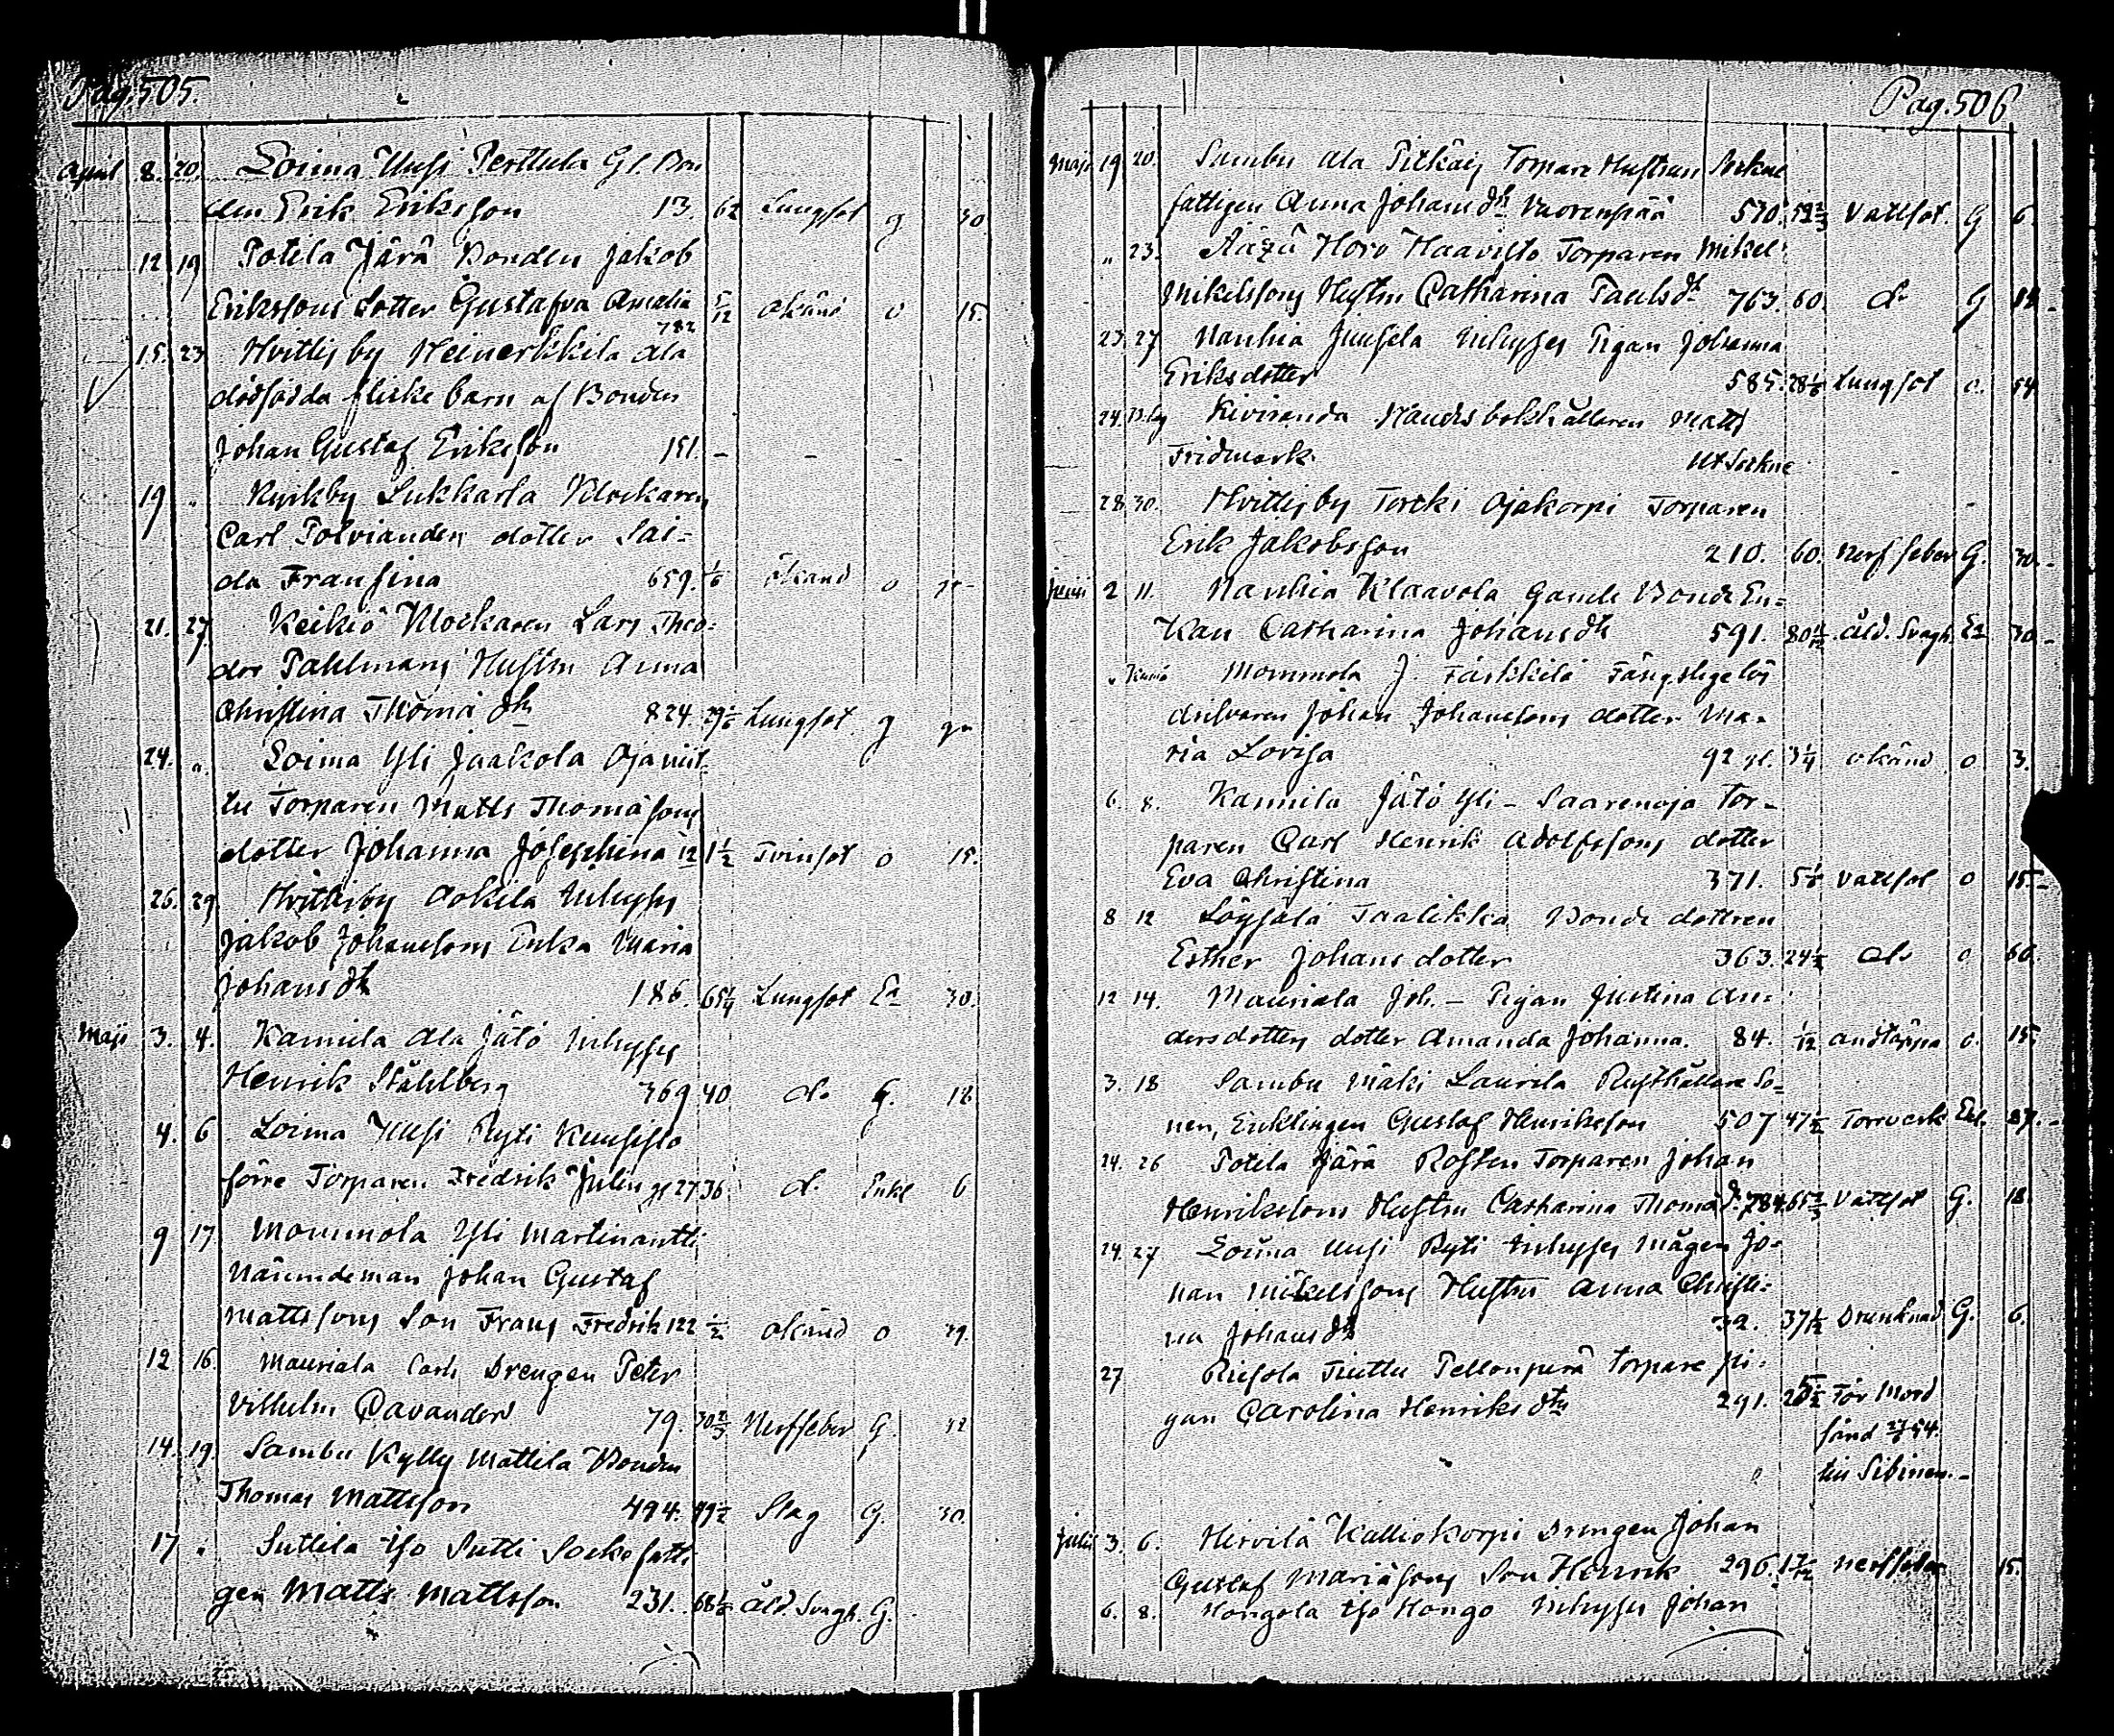 Pag. 505.
April 8. 20. Loima Uusi Perttula Gl. Bon
den Erik Eriksson 13. 62 Lungsot g 30.
12 19 Potila Järä Bonden Jakob
Erikssons dotter Gustafva Amalia 5/12 okänd o 15.
782
15. 23 Hvittis by Heinerkkilä ala
dödfödda flicke barn af Bonden
Johan Gustaf Eriksson 151. - - -
19 " Kyrkby Lukkarla Klockaren
Carl Polvianders dotter Sai=
da Fransina 659. 1/6 okänd o
21. 27. Keikiö Klockaren Lars Theo=
dor Pahlmans Hustru Anna
Christina Thomä dtr 824. Lungsot g
24. " Loima Yli Jaakola Ojaniit
tu Torparen Matts Thomäsons
dotter Johanna Josephina 12 1 1/2 Tvinsot o 15.
26. 29. Hvittisby Inhyses
Jakob Johanssons Enka Maria
Johansdtr 186. 65 1/4 Lungsot Ea 30.
Maji 3. 4. Kannila Ala Jätö Inhyses
Henrik Ståhlberg 369 40 do G. 18
4. 6 Loima Uusi Ryti Kuusisto
förre Torparen Fredrik Julin 27 36 do Enkl 6
9 17 Mommola Yli Martinantti
Nämndeman Johan Gustaf
Mattssons Son Frans Fredrik 122 1/2 okänd o
12 16. Mauriala Carls Drengen Peter
Vilhelm Cavander 79. 30 2/3 Nerffeber G. 12
14. 19. Sambu Kylly Mattila Bonden
Thomas Mattsson 494. 49 1/2 Slag G. 30.
17 " Suttila Iso Sutti Sockefatti
gen Matts Mattsson 231. 68 1/6 åld. Svagh. G.
Pag. 506
Maji 19 20. Sambu Ala Pitkäis Torpare Hustrun Sockne
fattigen Anna Johansdtr Vuorenpää 570. 52 2/3 Vattsot. G 6.
" 23. Horo Haavisto Torparen Mikel
Mikelssons Hustru Catharina Paulsdtr 763. 60. do G 18.
23 27 Nanhia Juusela Inhyses Pigan Johanna
Eriksdotter 585. 28 1/6 Lungsot o. 54
24. Kiviranda Hands bokhållaren Matts
Fridmark. Ut Sockne -
28 30. Hvittis by Torcki Ojakorpi Torparen
Erik Jakobsson 210. 60. Nerffeber G. 30.
Junii 2 11. Nanhia Klaavola Gamle Bonde En=
kan Catharina Johansdtr 591. 80 11/12 åld. Svagh. Ea 30.
" Kumo Mommola J. Färkkilä Fängsligelös
Johan Johanssons dotter Ma=
ria Lovisa 92 3 1/4 okänd o 3.
6. 8. Kannila Jätö Yli-Saarenoja Tor-
paren Carl Henrik Adolfssons dotter
Eva Christina 371. 5 1/6 Vattsot o 15.
8 12 Löysälä Taalikka Bonde dottren
Esther Johansdotter 363. 24 1/2 do o 60.
12 14. Mauriala Joh. - Pigan Justina An=
dersdotters dotter Amanda Johanna. 84. 1/12 andtäppa o. 15.
3. 18 Sambu Mäki Laurila Rusthållare So=
nen, Enklingen Gustaf Henriksson 507 47 1/2 Torrverk Enkl. 87.
24. 26 Potila Järä Rosten Torparen Johan
Henrikssons Hustru Catharina Thomä d. 784. 65 2/3 Vattsot G. 18.
24. 27 Loima Uusi Ryti Inhyses Mågen Jo=
han Mikelssons Hustru Anna Christi=
na Johansdtr 32. 37 1/2 Drunknad G. 6.
27 Riesola Tiuttu Pellonperä torpare pi=
gan Carolina Henriksdtr 291. 20 1/2 För Mord
sänd 54.
till Sibirien.-
Julii 3. 6. Hirvilä Kalliokorpi Drengen Johan
Gustaf Mariäsons Son Henrik 296. Nerffeber 15.
6. 8. Hongola Iso Hongo Inhyses Johan